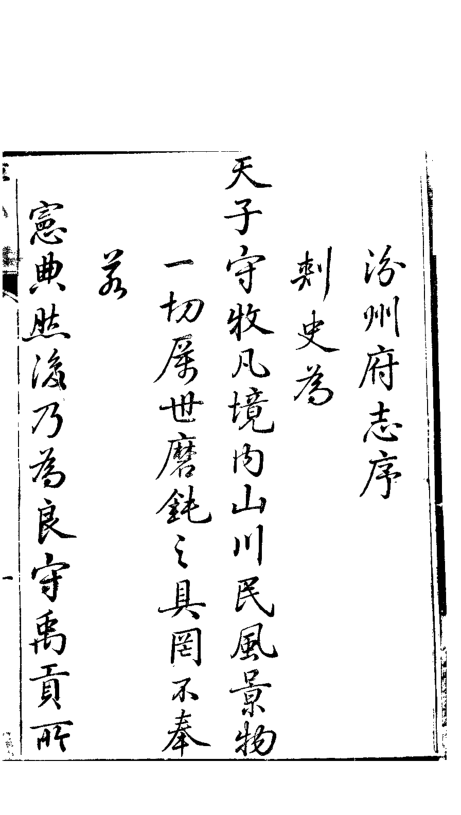 汾州府志序
刺史為
天子守牧凡境内山川民風景物
一切厲世磨鈍之具罔不奉
若
憲典然後乃為良守禹貢所